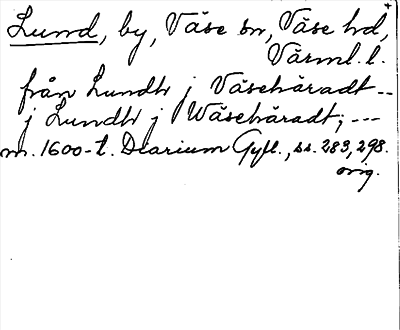 Lund, by, Väse sn, Väse hd,
Värml. l.
från Lundh j Väsehäradt--
j Lundh j Wäsehäradt; ---
m. 1600-t. Diarium Gyll., ss. 283, 298.
orig.